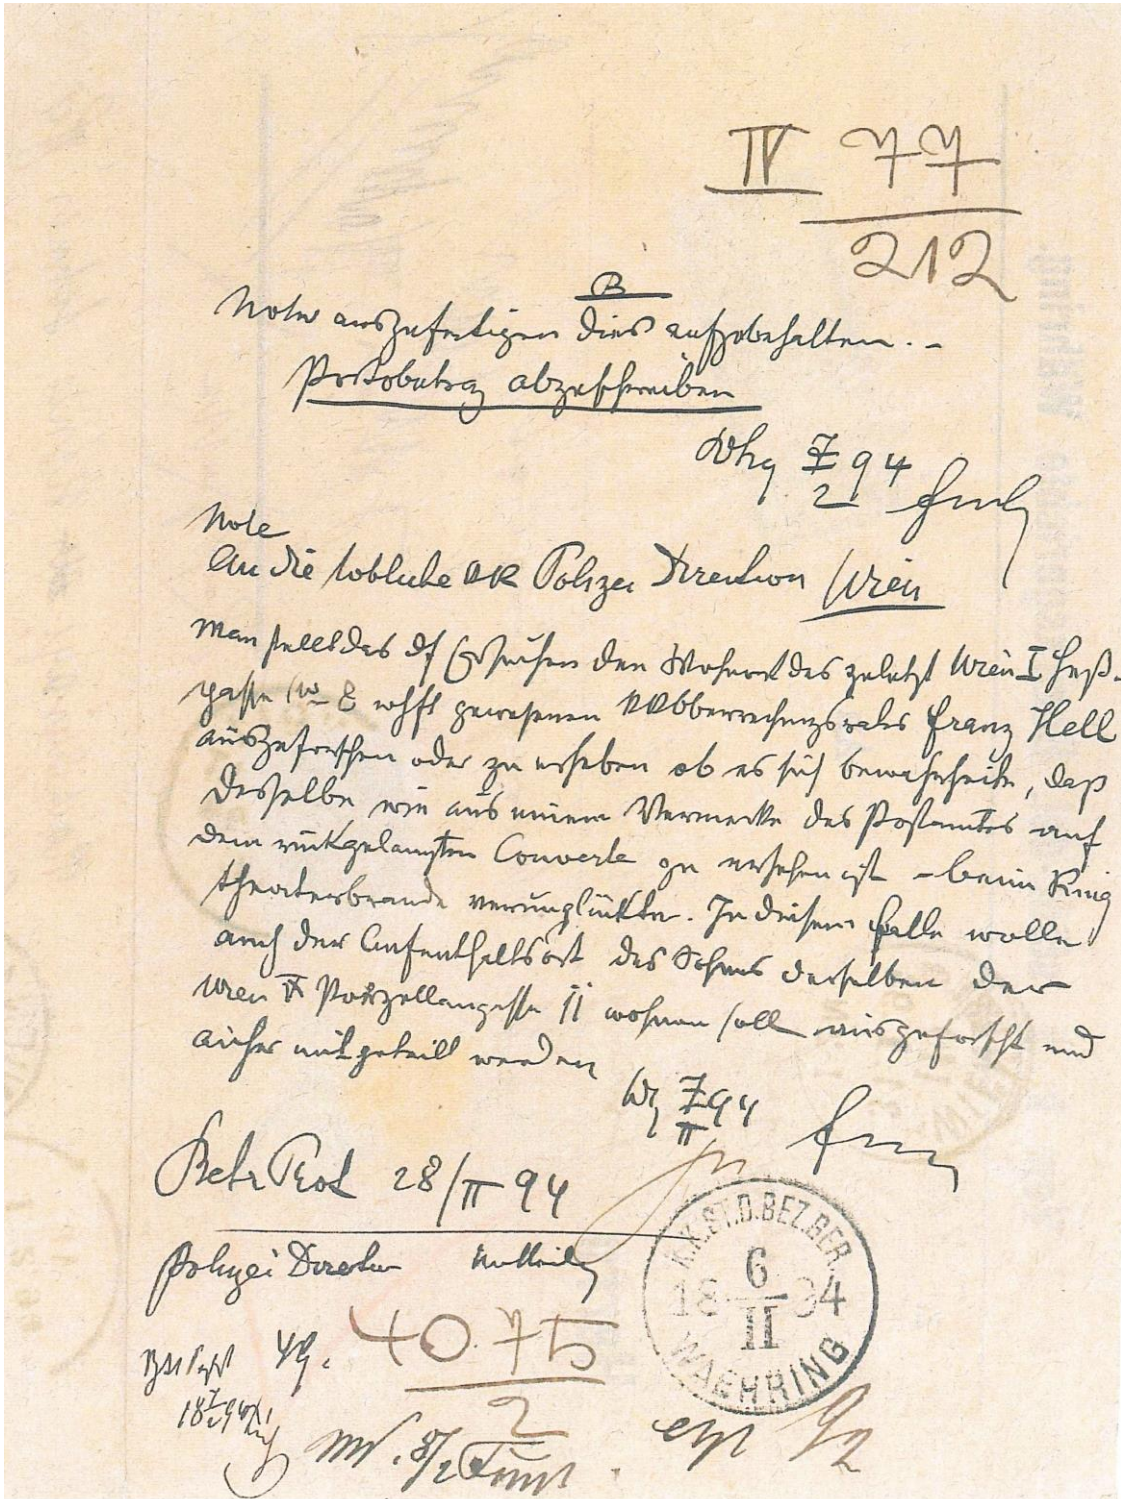 IV 77
212
B
Note auszufertigen dies aufzubehalten. -
Portobetrag abzuschreiben
Whg 7/2 94
Note
An die löbliche kk Polizei Direktion Wien
Man stellt das Ersuchen den Wohnort des zuletzt Wien I Heß-
gasse No 8 whft gewesenen kk Oberrechnungsrates Franz Hell
auszuforschen oder zu erheben ob es sich bewahrheite, daß
derselbe wie aus einem Vermerke des Postamtes auf
dem rückgelangten Couverte zu ersehen ist - beim Ring
theaterbrande verunglückte. In diesem Falle wolle
auch der Aufenthaltsort des Sohnes desselben der
Wien IX Porzellangasse 11 wohnen soll ausgeforscht und
anher mitgeteilt werden
7/II 94
Betr Prot 28/II 94
Polizei Direktion
40.75
2
K.K.ST.D.BEZ.GER.
18 6/II 94
WAEHRING
8/2
exp 9/2